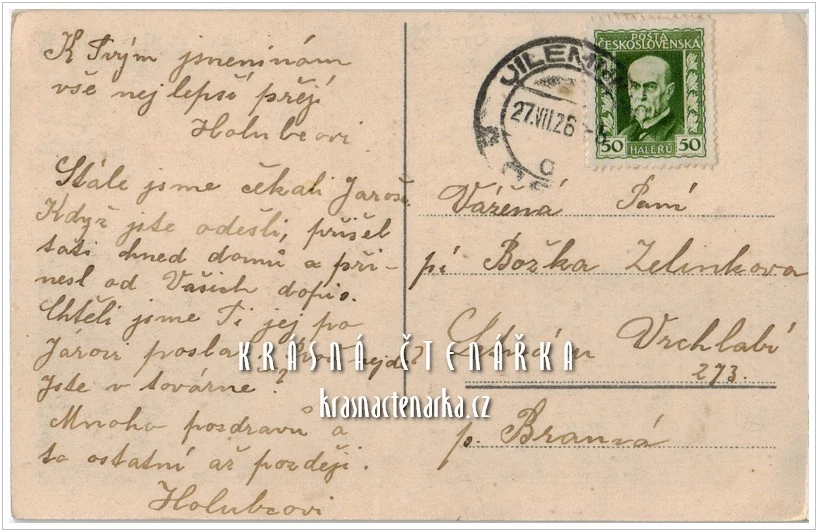 K Tvým jmeninám
vše nejlepší přejí
Holubcovi.
Stále jsme čekali Jaroše.
Když jste odešli, přišel
táti hned domů a při-
nesl od Vašich dopis.
Chtěli jsme Ti jej po
Járovi posla
Jste v továrně?
Mnoho pozdravů a
to ostatní až později.
Holubcovi
JILEM
27.VII.26
POŠTA
ČESKOSLOVENSKÁ
50 HALÉŘŮ 50
Vážená Paní
pí Božka Zelinkova
Vrchlabí
273.
p. Branná
KRÁSNÁ ČTENÁŘKA
krasnactenarka.cz